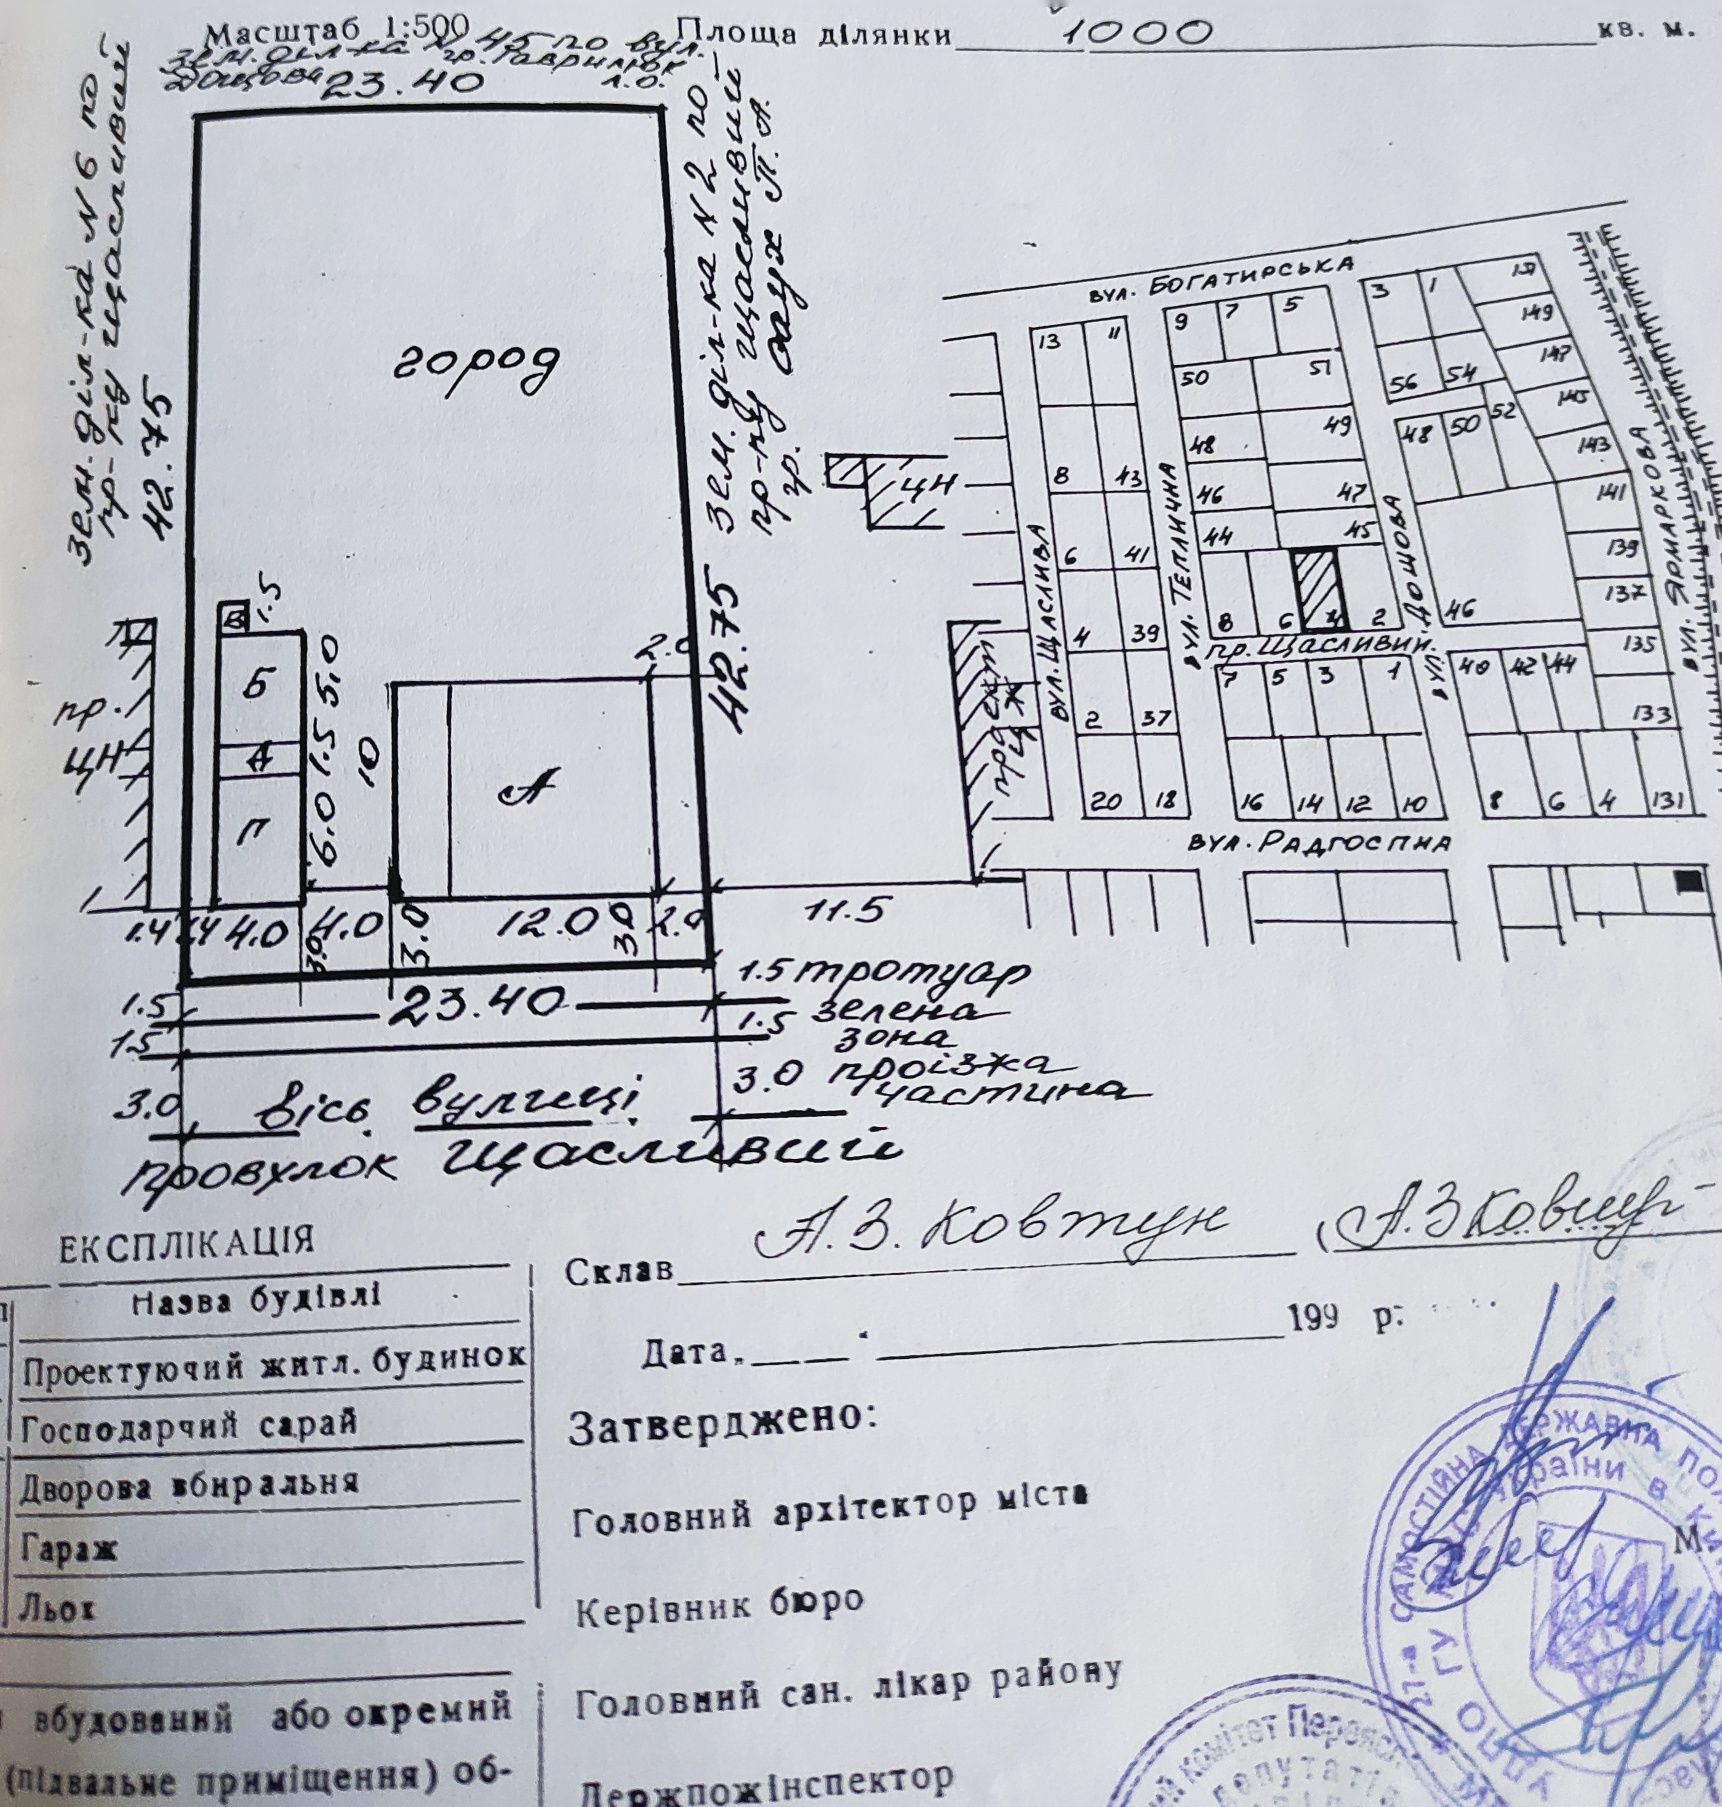 Масштаб 1:500 Площа ділянки 1000 кв. м.
зем. діл-ка N 45 по вул.
Дощова гр. Гаврилюк
Л.О.
23.40
Зем. діл-ка N 6 по
пр-ку Щасливий
42.75
город
42.75 Зем. діл-ка N 2 по
пр-ку Щасливий
гр. П. А.
ЦН
В 1.5
Б 5,0
А 1.5
П 6.0
10
А
2.0
пр.
ЦН
проект
ЦЖ
1.4 1.4 4.0 4.0 12.0 2.0 11.5
3.0 3.0 3.0
23.40
1.5 1.5 тротуар
1.5 1.5 зелена
зона
3.0 3.0 проїзка
частина
вісь вулиці
провулок Щасливий
вул. Богатирська
13 11 9 7 5 3 1 151
50 51 56 54 149
147
48 49 48 50 52 145
8 43 143
46 47 141
6 41 44 45 139
8 6 4 2 46 137
4 39 135
пр. Щасливий
2 37 7 5 3 1 40 42 44 133
20 18 16 14 12 10 8 6 4 131
вул. Щаслива
вул. Теплична
вул. Дощова
вул. Ярмаркова
вул. Радгоспна
ЕКСПЛІКАЦІЯ
Назва будівлі
Проектуючий житл. будинок
Господарчий сарай
Дворова вбиральня
Гараж
Льох
вбудований або окремий
(підвальне приміщення) об-
Склав А.З. Ковтун (А.З Ковтун
Дата 199 р.
Затверджено:
Головний архітектор міста
М.
Керівник бюро
Головний сан. лікар району
Держпожінспектор
27-а САМОСТІЙНА ДЕРЖАВНА ПО
України в Ки
комітет Переясл
депутаті